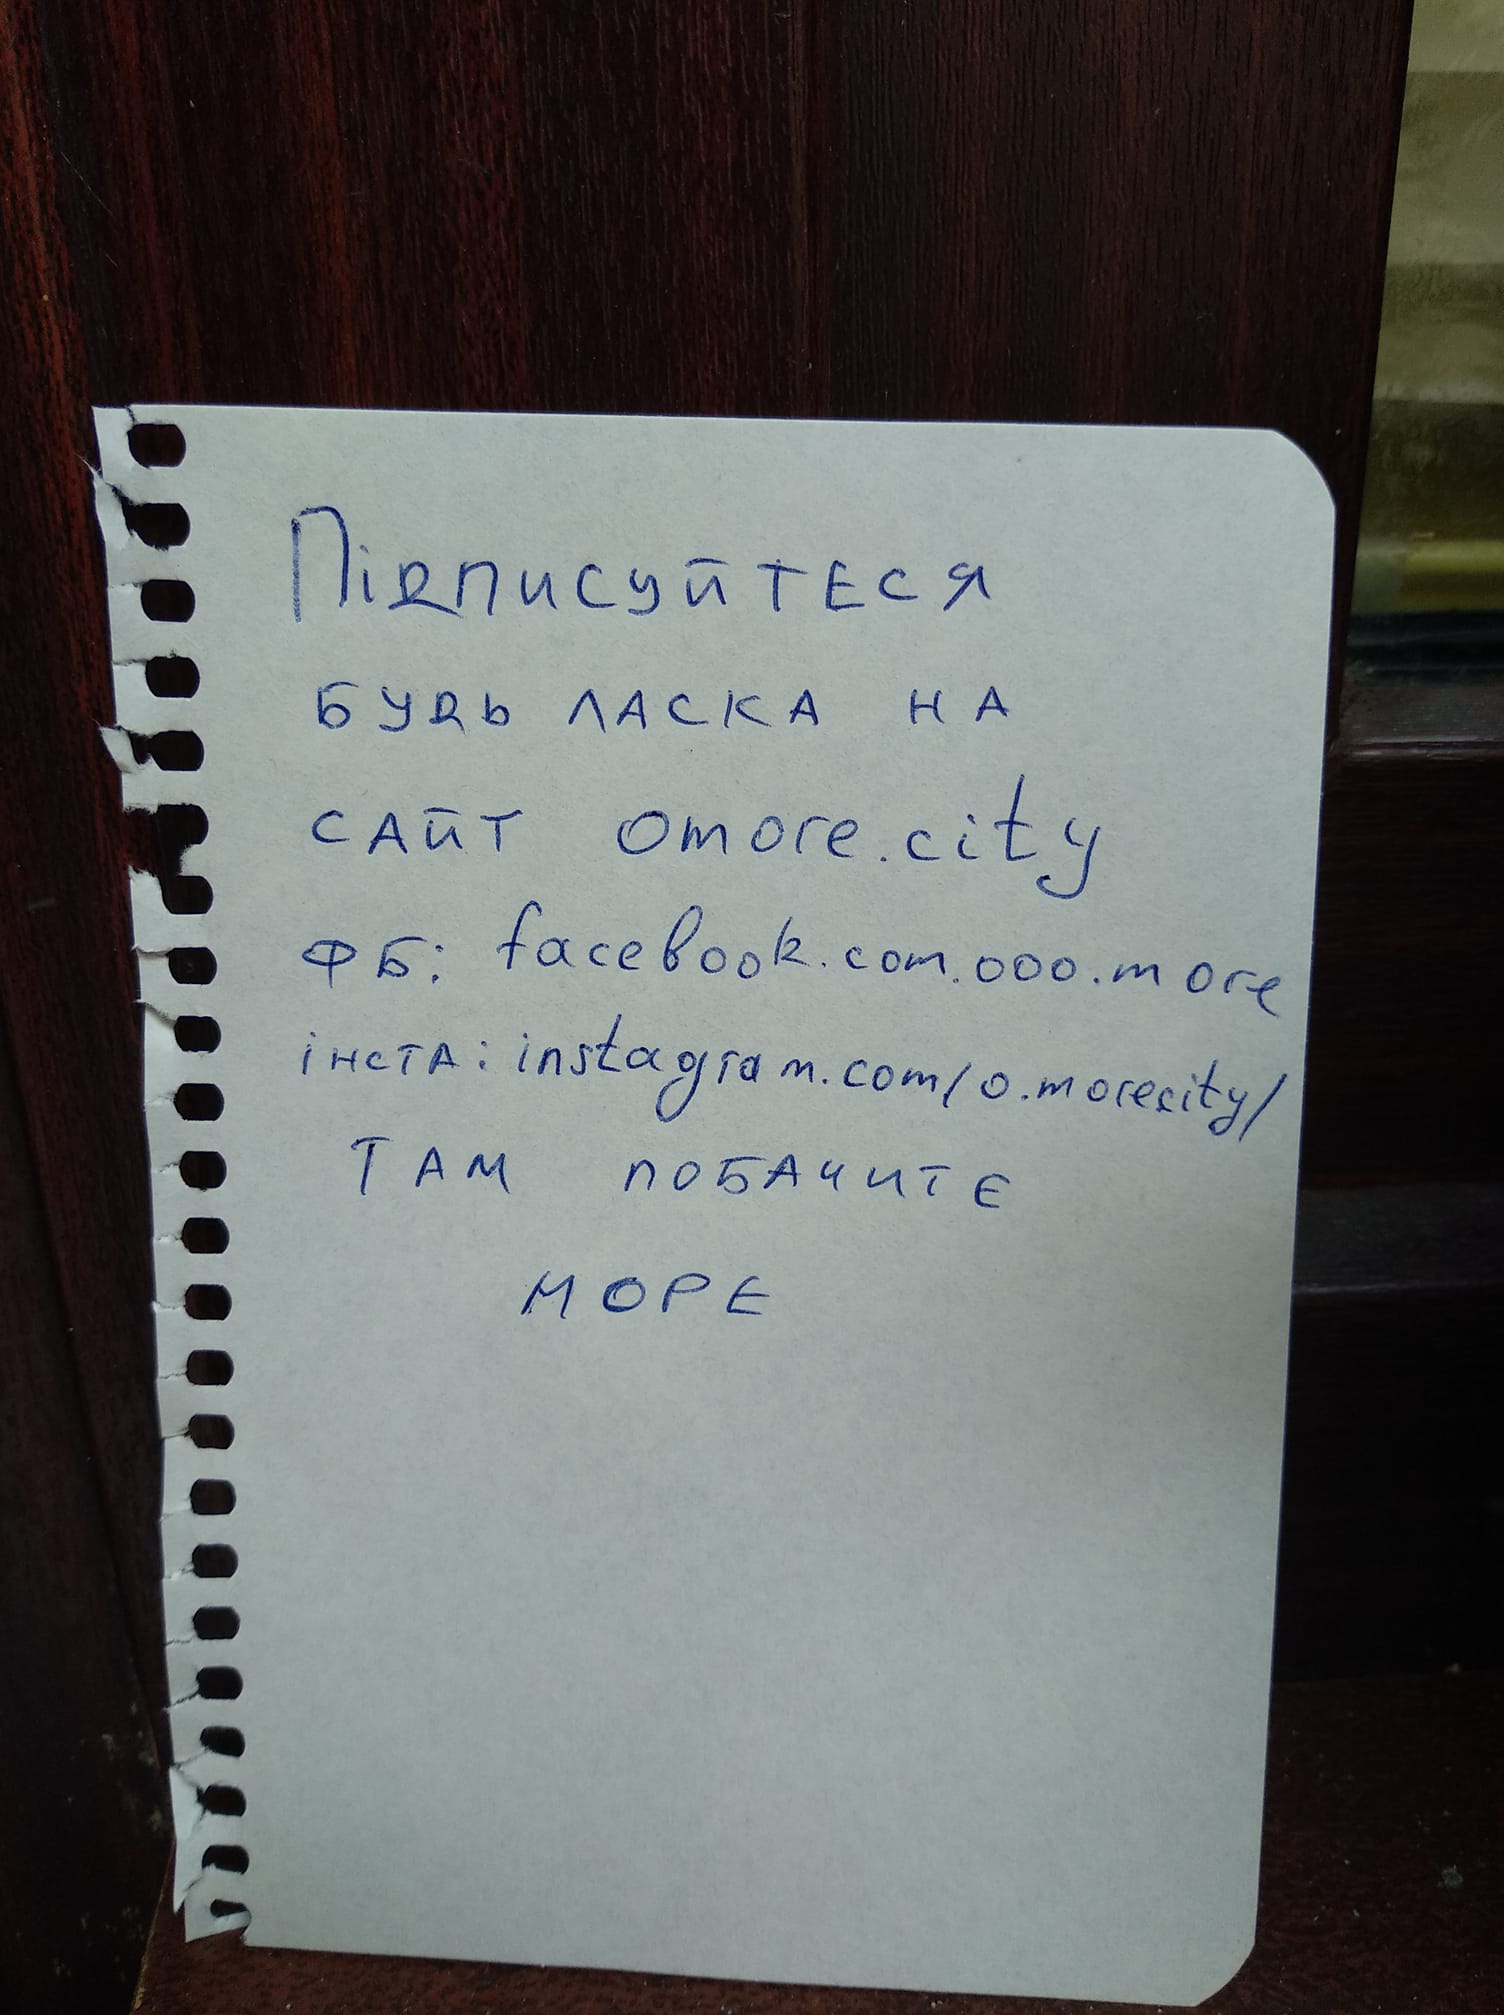 Підписуйтеся
будь ласка на
сайт omore.city
ФБ: facebook.com.ooo.more
інста: instagram.com/o.morecity/
Там побачите
море